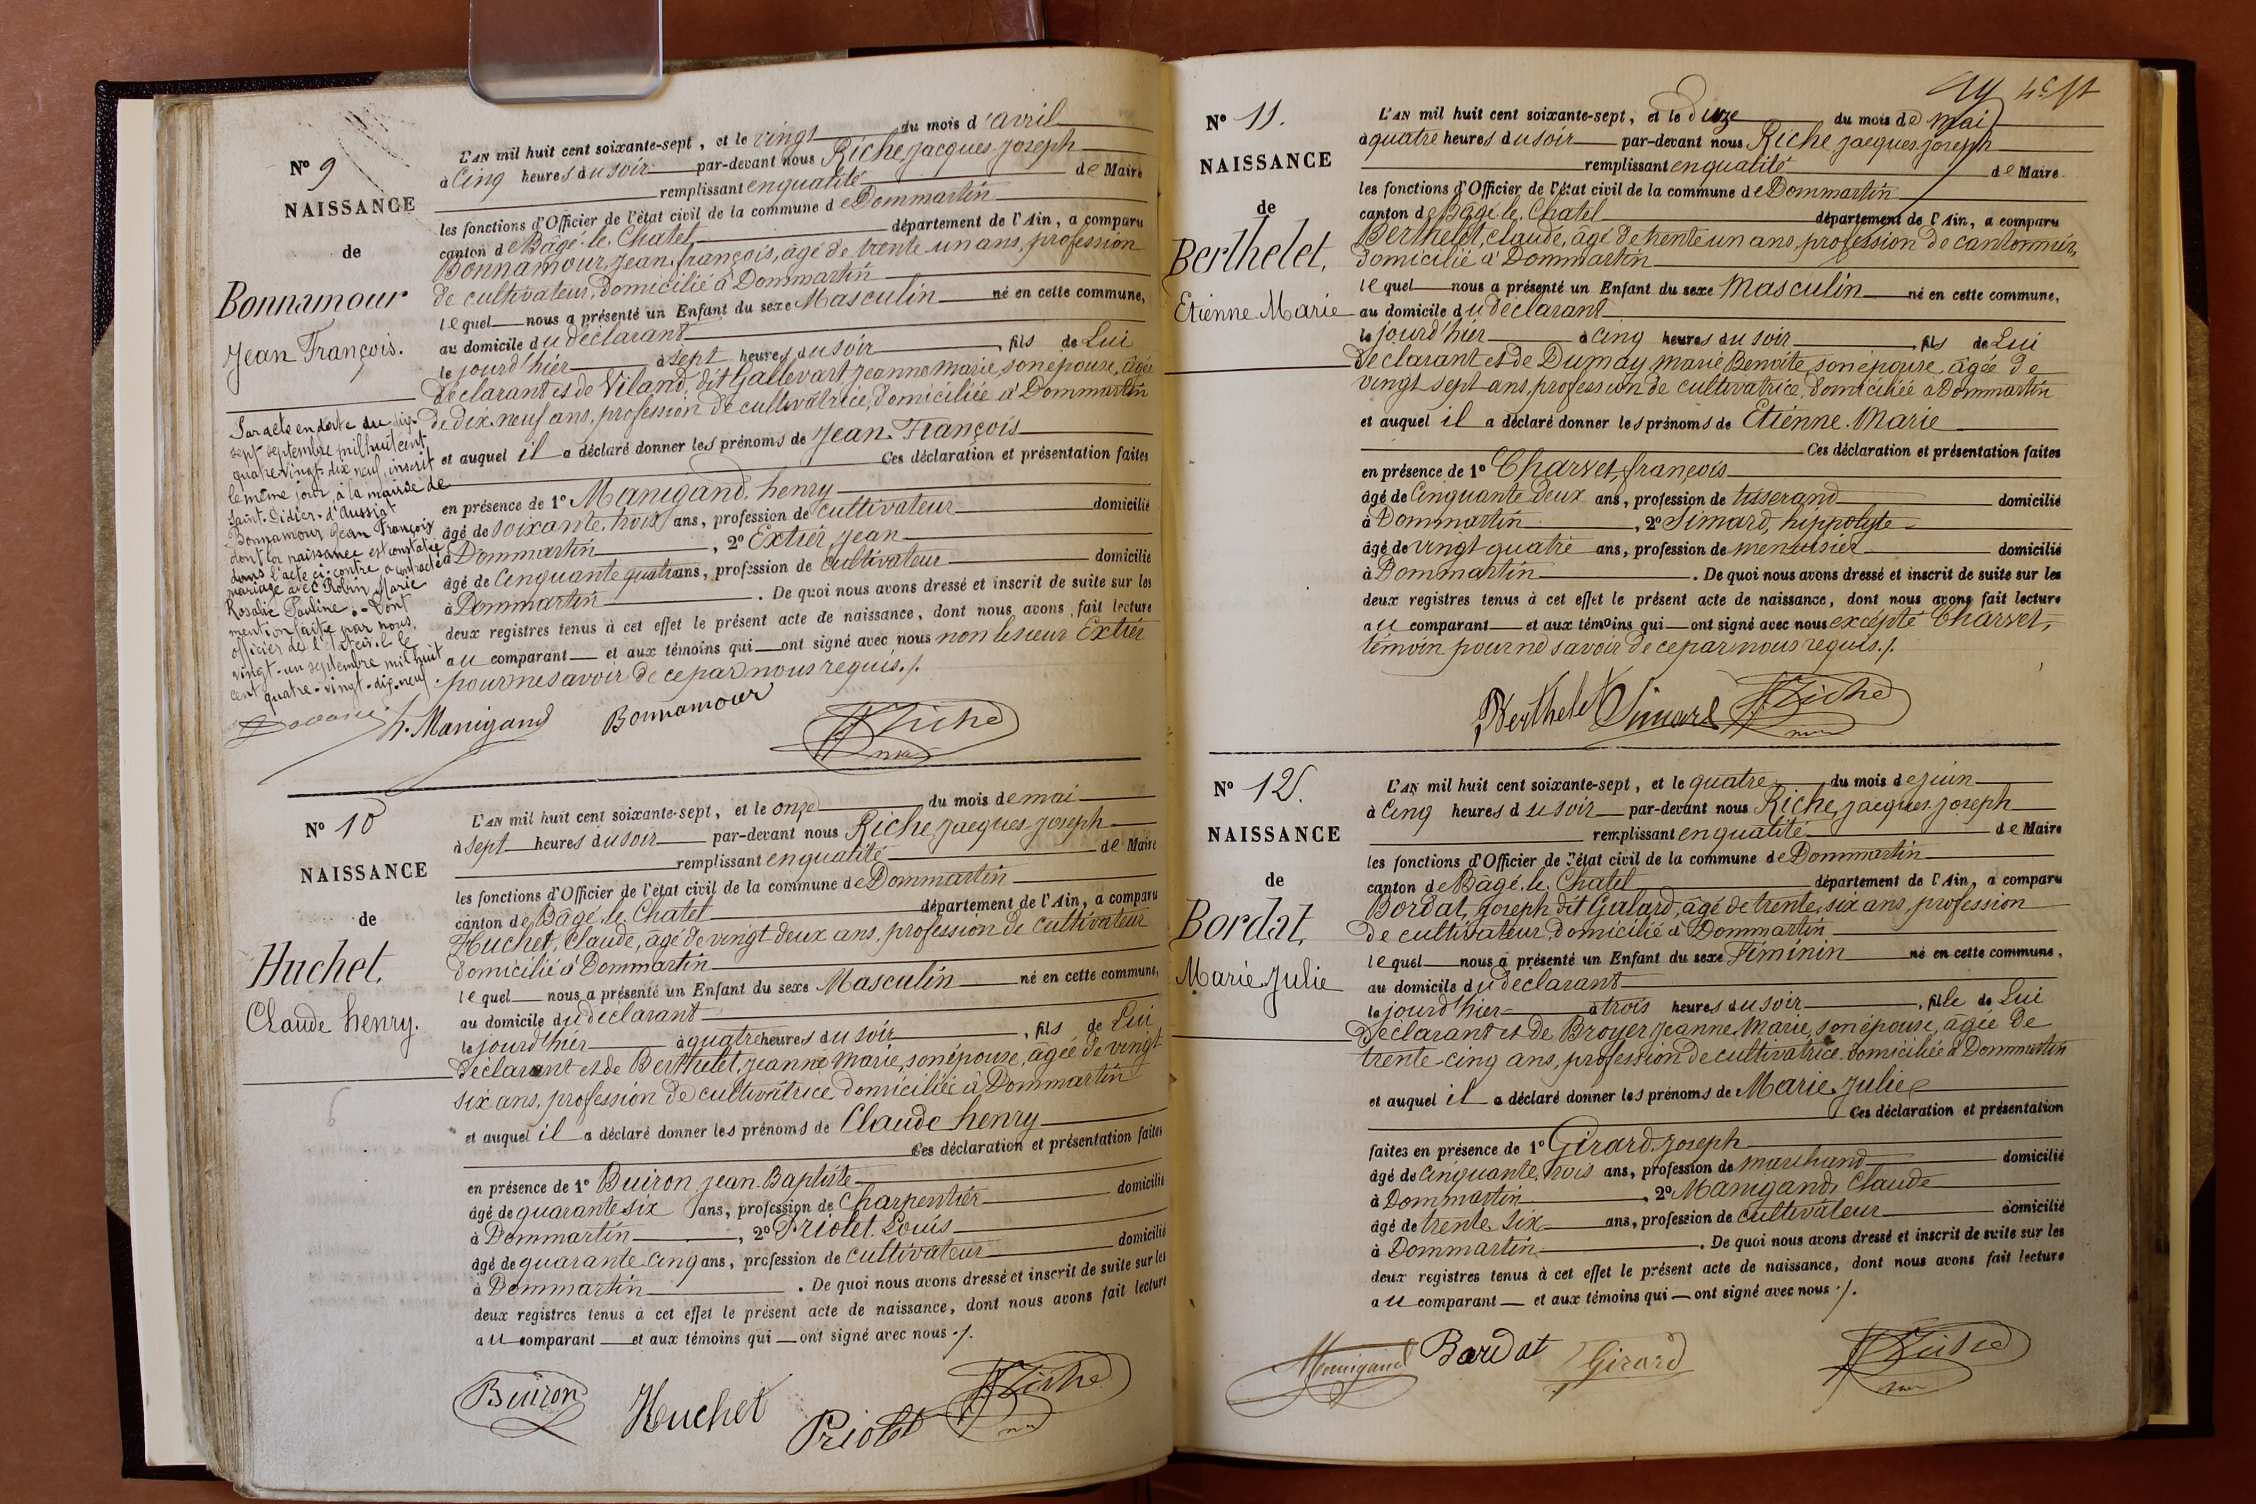 Nº 9
NAISSANCE
de
Bonnamour
Jean François.
Par acte en date du dix-
sept septembre mil huit cent
quatre vingt-dix neuf, inscrit
le même jour, à la mairie de
Saint-Didier-d'Aussiat
Bonnamour Jean François
dont la naissance est constatée
dans l'acte ci-contre a contracté
mariage avec Robin Marie
Rosalie Pauline. - Dont
mention faite par nous,
officier de l'état civil le
vingt-un septembre mil huit
cent quatre-vingt-dix-neuf
L'AN mil huit cent soixante-sept, et le vingt du mois d'avril
à cinq heures du soir par-devant nous Riche, Jacques Joseph
remplissant en qualité de Maire
les fonctions d'Officier de l'état civil de la commune de Dommartin
canton de Bâgé-le-Chatel département de l'Ain, a comparu
Bonnamour, Jean-françois, âgé de trente un ans, profession
de cultivateur, domicilié à Dommartin
lequel nous a présenté un Enfant du sexe Masculin né en cette commune,
au domicile du déclarant
le jourd'hier à sept heures du soir, fils de Lui
déclarant et de Viland, dit Gallevart Jeanne Marie, son épouse, âgée
de dix-neuf ans, profession de cultivatrice, domiciliée à Dommartin
et auquel il a déclaré donner les prénoms de Jean-François
Ces déclaration et présentation faites
en présence de 1º Manigand, henry
âgé de soixante-trois ans, profession de cultivateur domicilié
à Dommartin, 2º Extier, Jean
âgé de Cinquante quatre ans, profession de cultivateur domicilié
à Dommartin. De quoi nous avons dressé et inscrit de suite sur les
deux registres tenus à cet effet le présent acte de naissance, dont nous avons fait lecture
au comparant et aux témoins qui ont signé avec nous non le sieur Extier
pour ne savoir de ce par nous requis./.
h. Manigand Bonnamour Riche
Nº 10
NAISSANCE
de
Huchet,
Claude henry.
L'AN mil huit cent soixante-sept, et le onze du mois de mai
à sept heures du soir par-devant nous Riche, Jacques Joseph
remplissant en qualité de Maire
les fonctions d'Officier de l'état civil de la commune de Dommartin
canton de Bâgé-le-Chatel département de l'Ain, a comparu
Huchet, Claude, âgé de vingt deux ans, profession de cultivateur
domicilié à Dommartin
lequel nous a présenté un Enfant du sexe Masculin né en cette commune,
au domicile du déclarant
le jourd'hier à quatre heures du soir, fils de Lui
déclarant et de Berthelet, Jeanne Marie, son épouse, âgée de vingt
six ans, profession de cultivatrice domiciliée à Dommartin
et auquel il a déclaré donner les prénoms de Claude henry
Ces déclaration et présentation faites
en présence de 1º Buiron Jean-Baptiste
âgé de quarante six ans, profession de Charpentier domicilié
à Dommartin, 2º Priolet Louis
âgé de quarante cinq ans, profession de cultivateur domicilié
à Dommartin. De quoi nous avons dressé et inscrit de suite sur les
deux registres tenus à cet effet le présent acte de naissance, dont nous avons fait lecture
au comparant et aux témoins qui ont signé avec nous ./.
Buiron Huchet Priolet Riche
Nº 11.
NAISSANCE
de
Berthelet,
Etienne Marie
L'AN mil huit cent soixante-sept, et le douze du mois de mai
à quatre heures du soir par-devant nous Riche Jacques Joseph
remplissant en qualité de Maire
les fonctions d'Officier de l'état civil de la commune de Dommartin
canton de Bâgé-le-Chatel département de l'Ain, a comparu
Berthelet, claude, âgé de trente un ans, profession de cantonnier,
domicilié à Dommartin
lequel nous a présenté un Enfant du sexe masculin né en cette commune,
au domicile du déclarant
le jourd'hier à cinq heures du soir, fils de Lui
déclarant et de Dumay marie Benoite, son épouse, âgée de
vingt sept ans, profession de cultivatrice, domiciliée à Dommartin
et auquel il a déclaré donner les prénoms de Etienne-Marie
Ces déclaration et présentation faites
en présence de 1º Charvet, françois
âgé de Cinquante deux ans, profession de tisserand domicilié
à Dommartin, 2º Simard, hippolyte
âgé de vingt quatre ans, profession de menuisier domicilié
à Dommartin. De quoi nous avons dressé et inscrit de suite sur les
deux registres tenus à cet effet le présent acte de naissance, dont nous avons fait lecture
au comparant et aux témoins qui ont signé avec nous excepté Charvet,
témoin pour ne savoir de ce par nous requis./.
Berthelet Simard Riche
Nº 12.
NAISSANCE
de
Bordat,
Marie Julie
L'AN mil huit cent soixante-sept, et le quatre du mois de juin
à Cinq heures du soir par-devant nous Riche, Jacques Joseph
remplissant en qualité de Maire
les fonctions d'Officier de l'état civil de la commune de Dommartin
canton de Bâgé-le-Chatel département de l'Ain, a comparu
Bordat, Joseph dit Galard, âgé de trente six ans, profession
de cultivateur, domicilié à Dommartin
lequel nous a présenté un Enfant du sexe Féminin né en cette commune,
au domicile du déclarant
le jourd'hier à trois heures du soir, fille de Lui
Déclarant et de Broyer Jeanne Marie, son épouse, âgée de
trente-cinq ans, profession de cultivatrice domiciliée à Dommartin
et auquel il a déclaré donner les prénoms de Marie Julie
Ces déclaration et présentation
faites en présence de 1º Girard, Joseph
âgé de cinquante trois ans, profession de marchand domicilié
à Dommartin, 2º Manigand, Claude
âgé de trente six ans, profession de cultivateur domicilié
à Dommartin. De quoi nous avons dressé et inscrit de suite sur les
deux registres tenus à cet effet le présent acte de naissance, dont nous avons fait lecture
au comparant et aux témoins qui ont signé avec nous ./.
Manigand Bordat Girard Riche